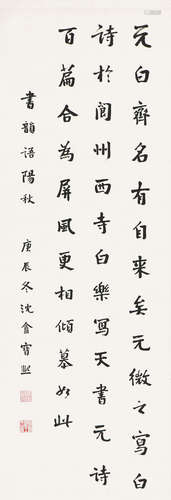 元白齊名有自来矣元微之寫白
詩於閬州西寺白樂寫天書元詩
百篇合為屏風更相傾慕如此
書韻語陽秋 庚辰冬沈盦寶熙